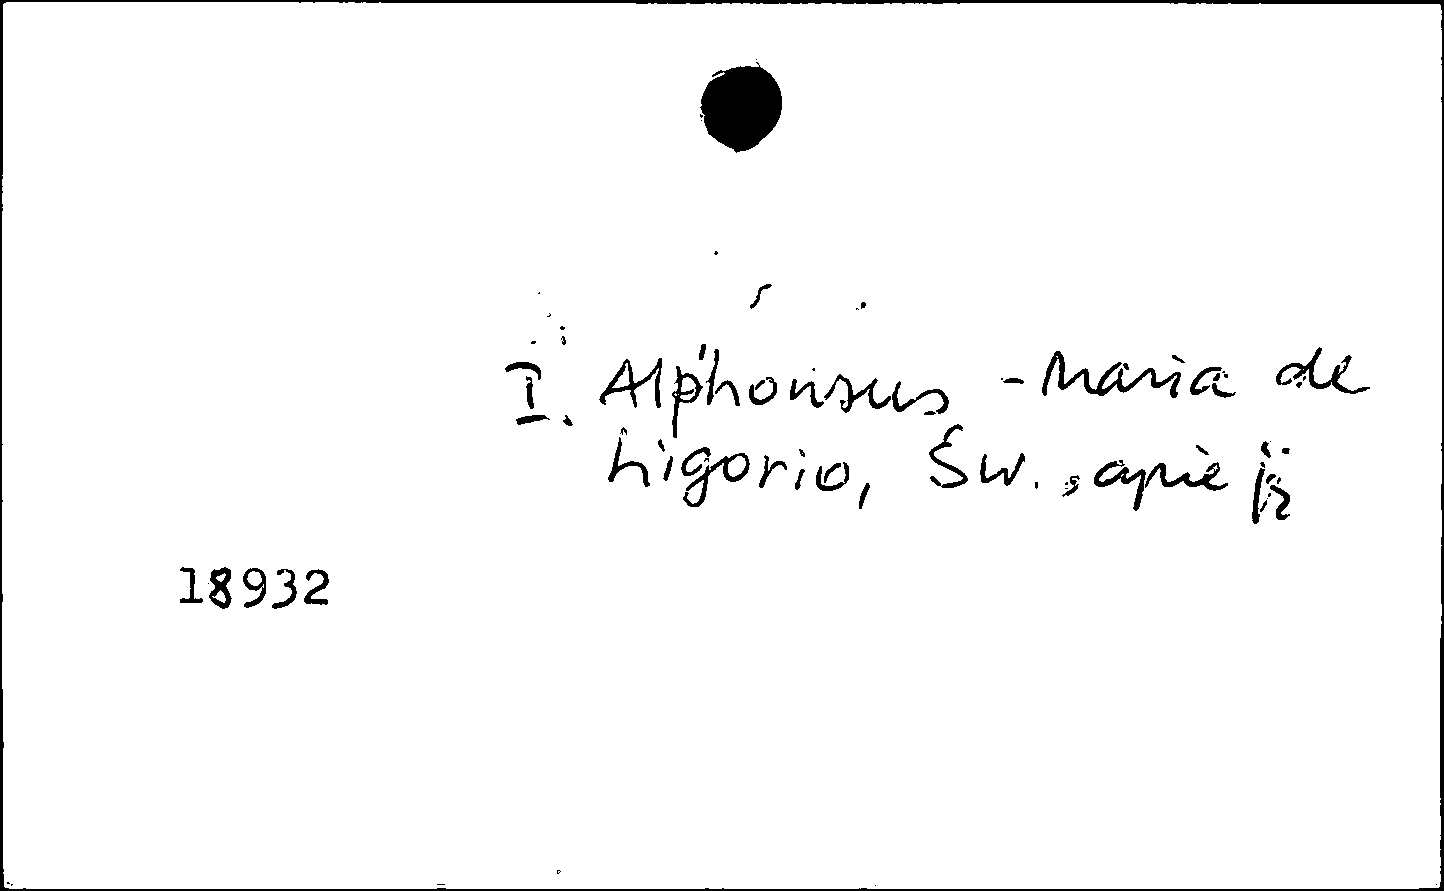 I. Alphonsus-Maria de
Ligorio, Św., apie jį
18932